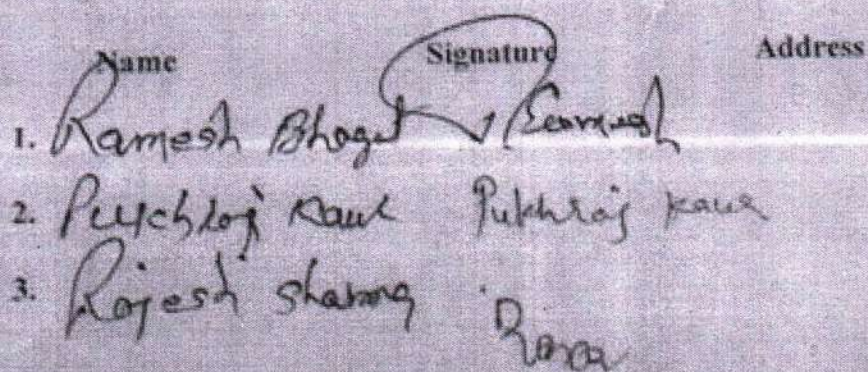 Name Signature Address
1. Ramesh Bhagat Ramesh
2. Pukhraj Kaur Pukhraj Kaur
3. Rajesh Sharma